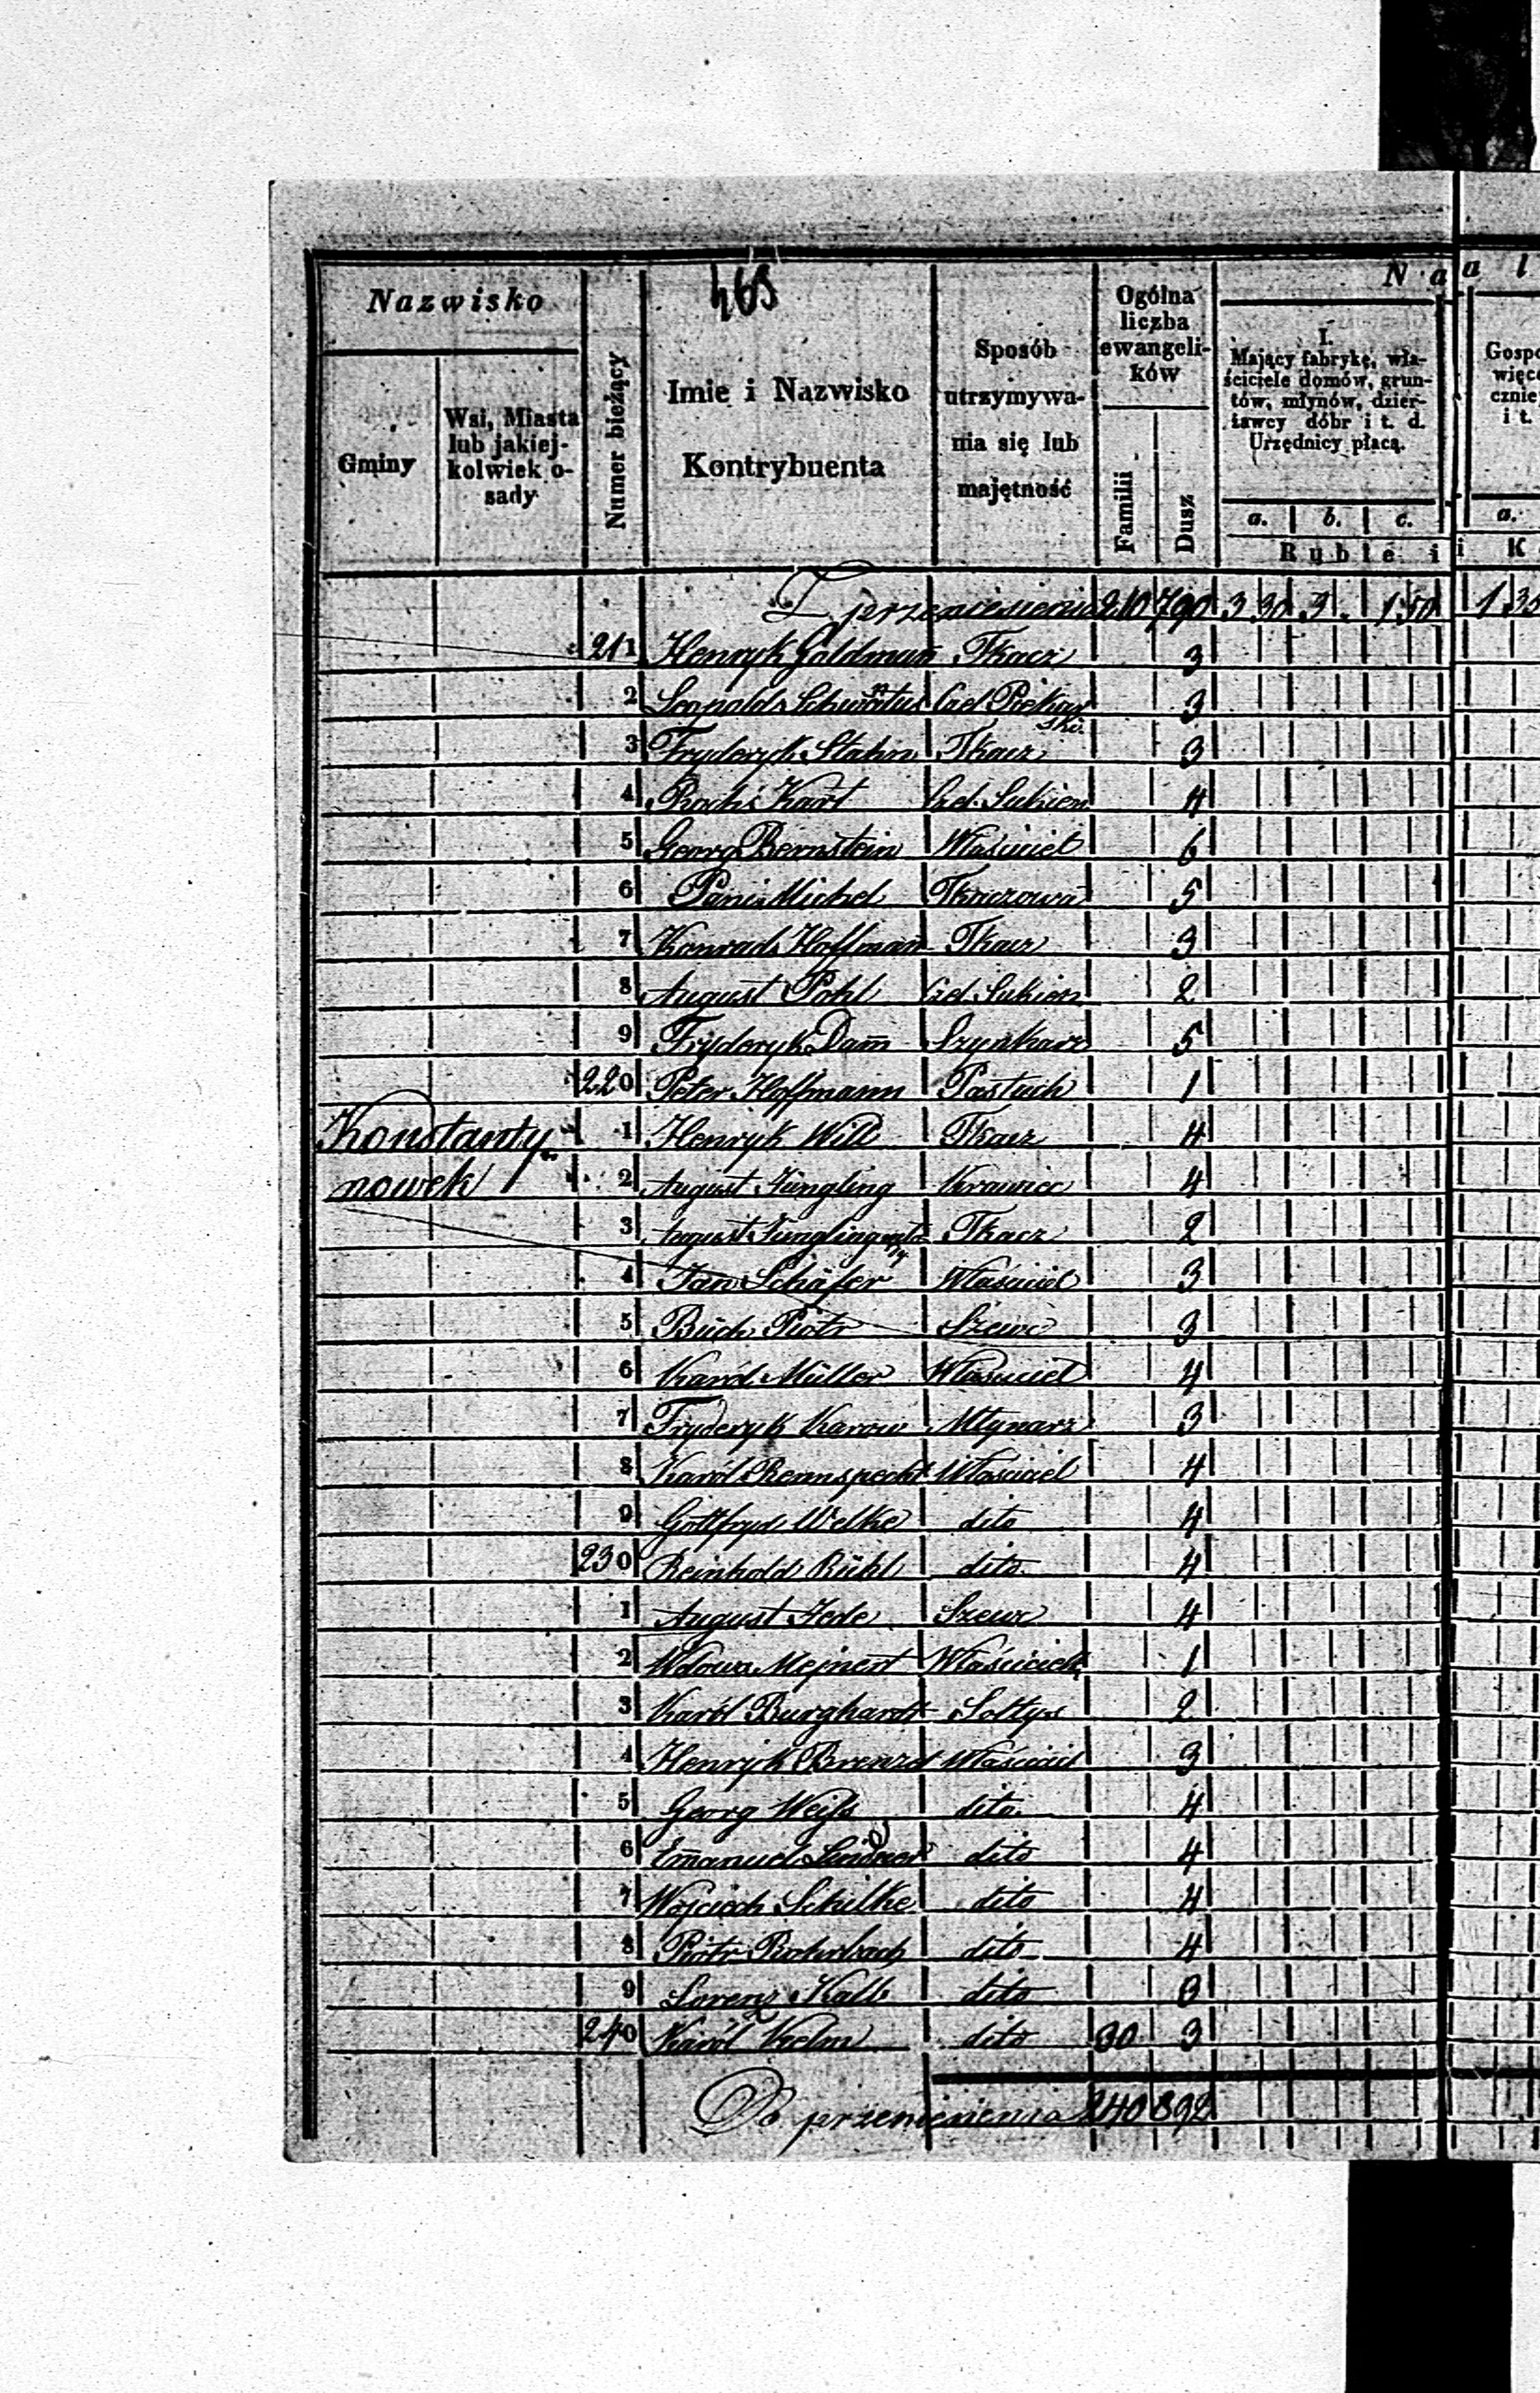 465
N a a l
Nazwisko
Gminy
Wsi, Miasta
lub jakiej-
kolwiek o-
sady
Numer bieżący
Imie i Nazwisko
Kontrybuenta
Sposób
utrzymywa-
nia się lub
majętność
Ogólna
liczba
ewangeli-
ków
Familii
Dusz
I.
Mający fabrykę, wła-
ściciele domów, grun-
tów, młynów, dzier-
żawcy dóbr i t. d.
Urzędnicy płacą.
a. b. c.
Ruble i i K
Gospo
więce
cznie
i t.
a.
Z przeniesienia 210 790 3 30 3 . 1 50 1 35
211 Henryk Goldman Tkacz 3
2 Leopold Czel Piekar
ski 3
3 Fryderyk Stahn Tkacz 3
4 Kart Czel. Sukien 4
5 Georg Bernstein Właściciel 6
6 Pani Michel Tkaczowa 5
7 Konrad Hoffman Tkacz 3
8 August Pohl Czel. Sukien 2
9 Fryderyk Dam̄ Szynkarz 5
220 Peter Hoffmann Pastuch 1
Konstanty- 1 Henryk Will Tkacz 4
nowek 2 August Jüngling Krawiec 4
3 August Jüngling Tkacz 2
4 Jan Schäfer Właściciel 3
5 Büch Piotr Szewc 3
6 Karól Müller Właściciel 4
7 Fryderyk Karow Młynarz 3
8 Karól Rennspecht Właściciel 4
9 Gottfryd Welke dito 4
230 Reinhold Rühl dito 4
1 August Jede Szewc 4
2 Wdowa Mejnert Właścicielka 1
3 Karól Burghardt Sołtys 2
4 Henryk Właściciel 3
5 Georg Weiſs dito 4
6 Em̄anuel Lindner dito 4
7 Wojciech Schilke dito 4
8 Piotr dito 4
9 Lorenz Kalb dito 3
240 Karól Kelm dito 30 3
Do przeniesienia 240 892